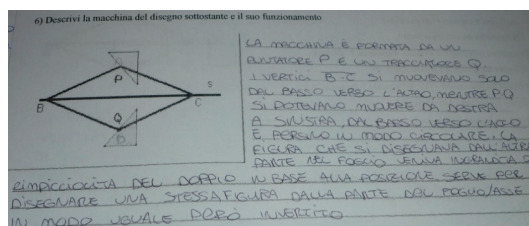 6) Descrivi la macchina del disegno sottostante e il suo funzionamento
P
B
C
s
Q
D
LA MACCHINA È FORMATA DA UN
PUNTATORE P E UN TRACCIATORE Q.
I VERTICI B-C SI MUOVEVANO SOLO
DAL BASSO VERSO L'ALTRO, MENTRE PQ
SI POTEVANO MUOVERE DA DESTRA
A SINISTRA, DAL BASSO VERSO L'ALTO
E PERSINO IN MODO CIRCOLARE. LA
FIGURA CHE SI DISEGNAVA DALL'ALTRA
PARTE NEL FOGLIO VENIVA INGRANDITA O
RIMPICCIOCITA DEL DOPPIO IN BASE ALLA POSIZIONE. SERVE PER
DISEGNARE UNA STESSA FIGURA DALLA PARTE DEL FOGLIO/ASSE
IN MODO UGUALE PERÒ INVERTITO